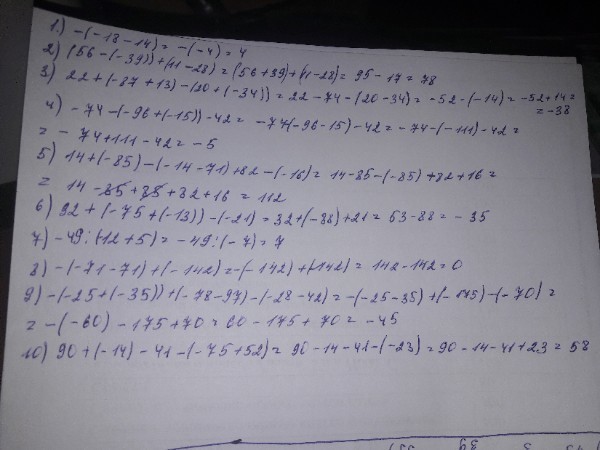 1.) -(-18-14) = -(-4) = 4
2) (56-(-39))+(11-28) = (56+39)+(11-28) = 95-17 = 78
3) 22+(-87+13)-(20+(-34)) = 22-74-(20-34) = -52-(-14) = -52+14 =
= -38
4) -74-(-96+(-15))-42 = -74-(-96-15)-42 = -74-(-111)-42 =
= -74+111-42 = -5
5) 14+(-85)-(-14-71)+82-(-16) = 14-85-(-85)+82+16 =
= 14-85+85+82+16 = 112
6) 92+(-75+(-13))-(-21) = 32+(-88)+21 = 53-88 = -35
7) -49:(-12+5) = -49:(-7) = 7
8) -(-71-71)+(-142) = -(-142)+(-142) = 142-142 = 0
9) -(-25+(-35))+(-78-97)-(-28-42) = -(-25-35)+(-175)-(-70) =
= -(-60)-175+70 = 60-175+70 = -45
10) 90+(-14)-41-(-75+52) = 90-14-41-(-23) = 90-14-41+23 = 58